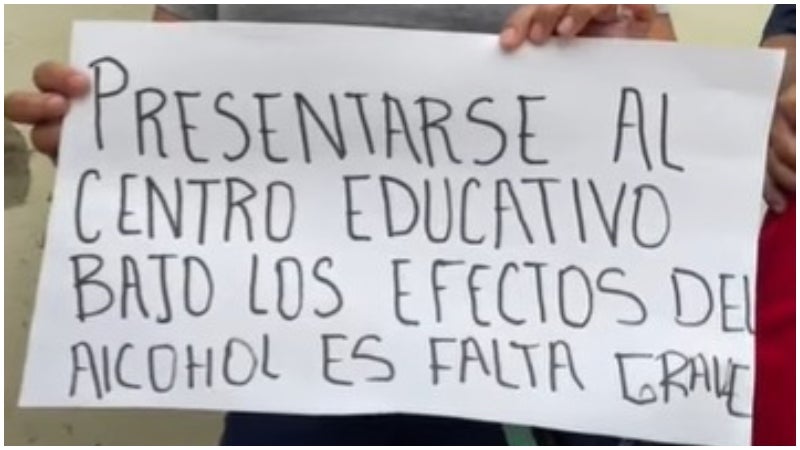 PRESENTARSE AL
CENTRO EDUCATIVO
BAJO LOS EFECTOS DEL
AlCOHOL ES FALTA GRAVE